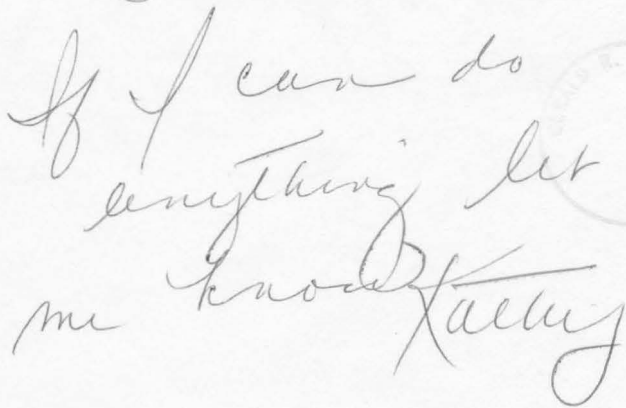 If I can do
anything let
me know Kathy